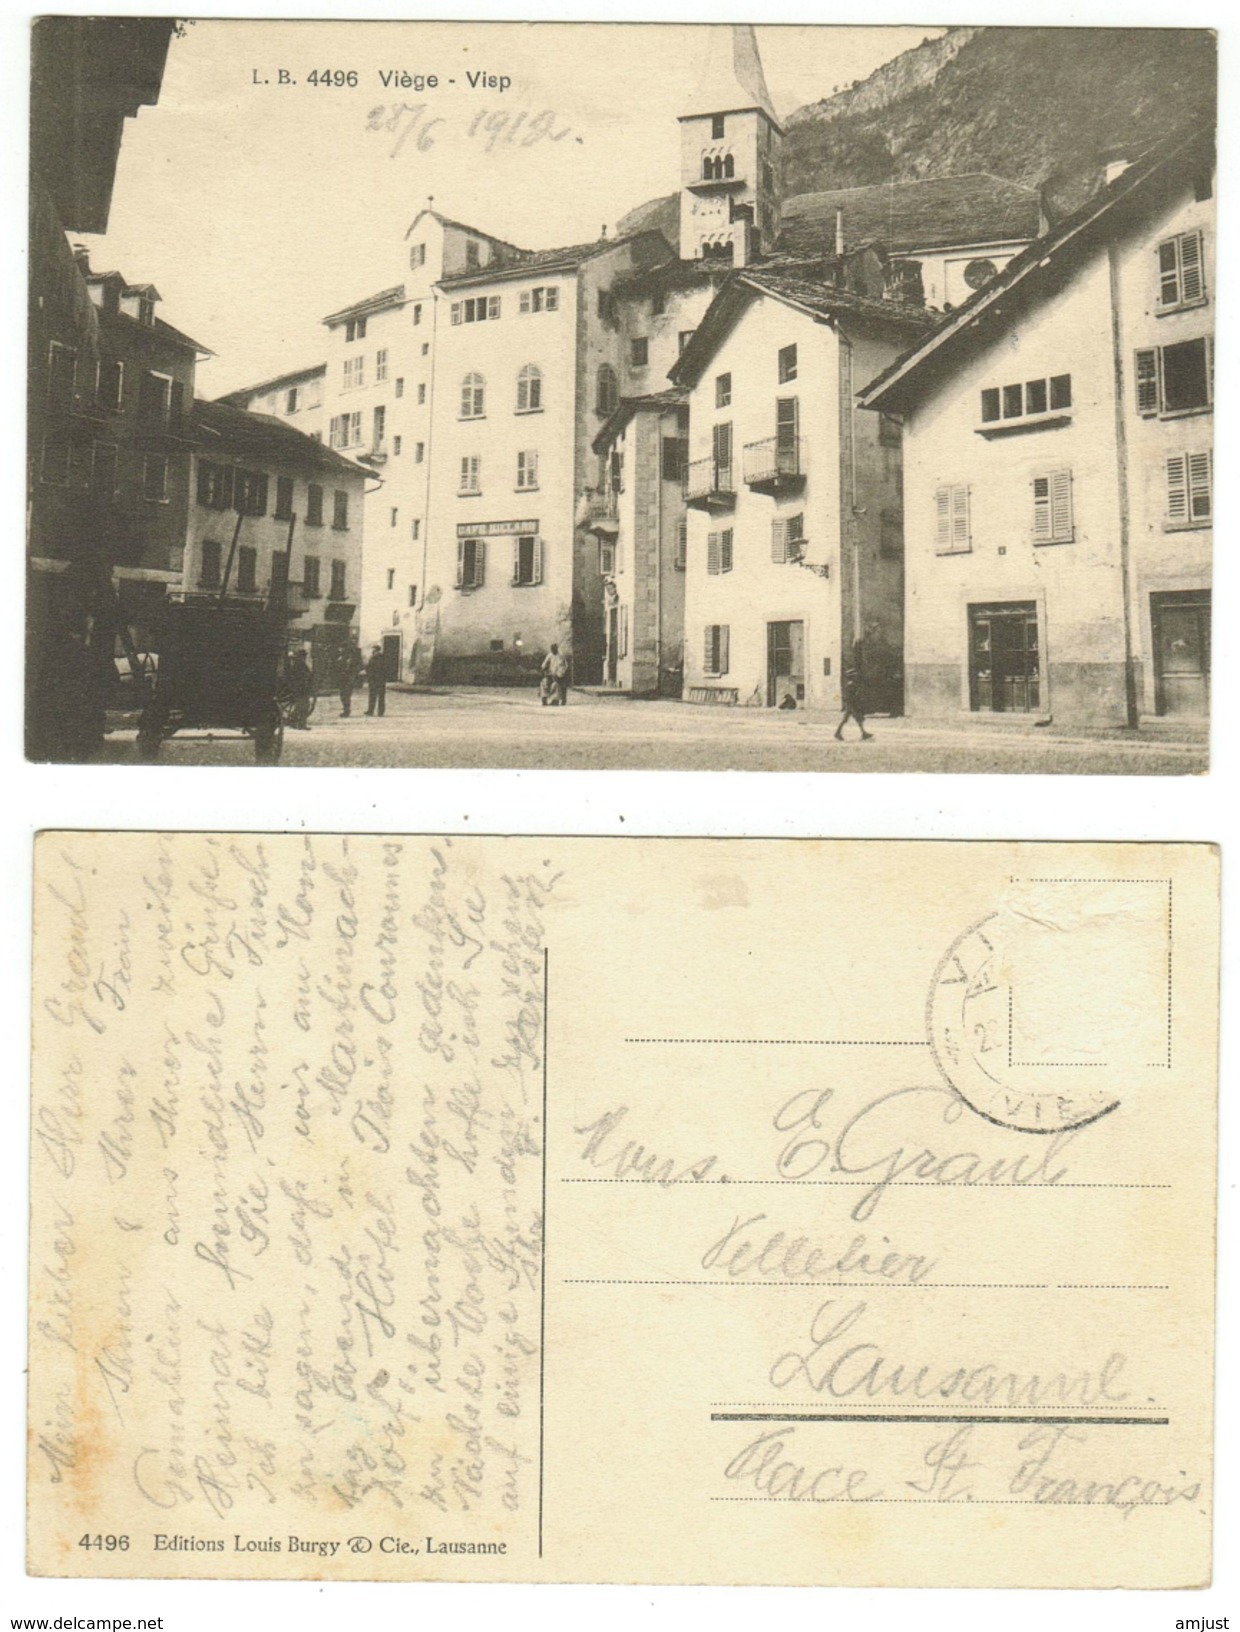 L. B. 4496 Viège - Visp
28/6 1912.
CAFÉ BILLARD
Mein lieber Herr Graul!
Ihnen & Ihrer Frau
Gemahlin aus Ihrer zweiten
Heimat freundliche Grüße.
Ich bitte Sie, Herrn
zu sagen, daß wir am Mon-
tag Abend in Martinach-
Dorf Hôtel Trois Couronnes
zu übernachten gedenken.
Nächste Woche hoffe ich Sie
auf einige Stunden zu sehen.
Ihr
4496 Editions Louis Burgy & Cie., Lausanne
VIE
Mons. E. Graul
Pelletier
Lausanne.
Place St. François.
www.delcampe.net
amjust